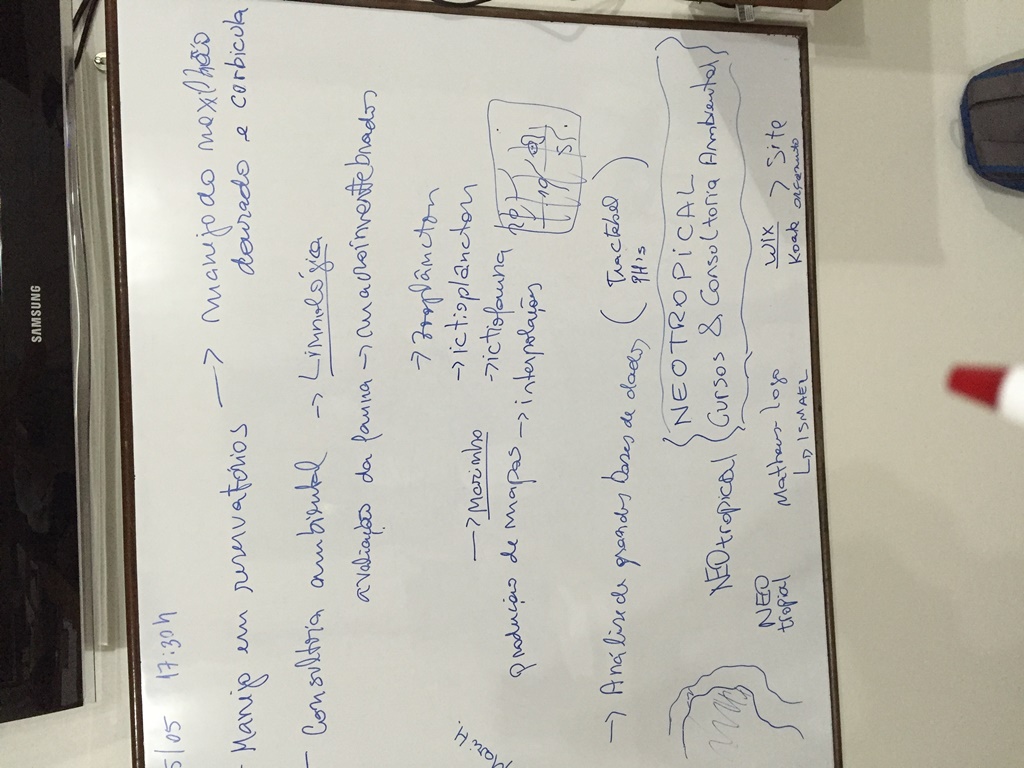 SAMSUNG
5/05 17:30h
- Manejo em reservatórios → manejo do mexilhão
dourado e corbicula
- Consultoria ambiental → Limnológica
avaliação da fauna → macroinvertebrados
→ zooplâncton
→ ictioplâncton
→ Marinho
→ ictiofauna
Mari H.
produção de mapas → interpolações
→ Análise de grandes bases de dados (Tractebel
PH's)
NEOTROPICAL
NEOtropical
Cursos & Consultoria Ambiental
NEO
tropial
Matheus logo
L> ISMAEL
WIX > Site
Koak orçamento